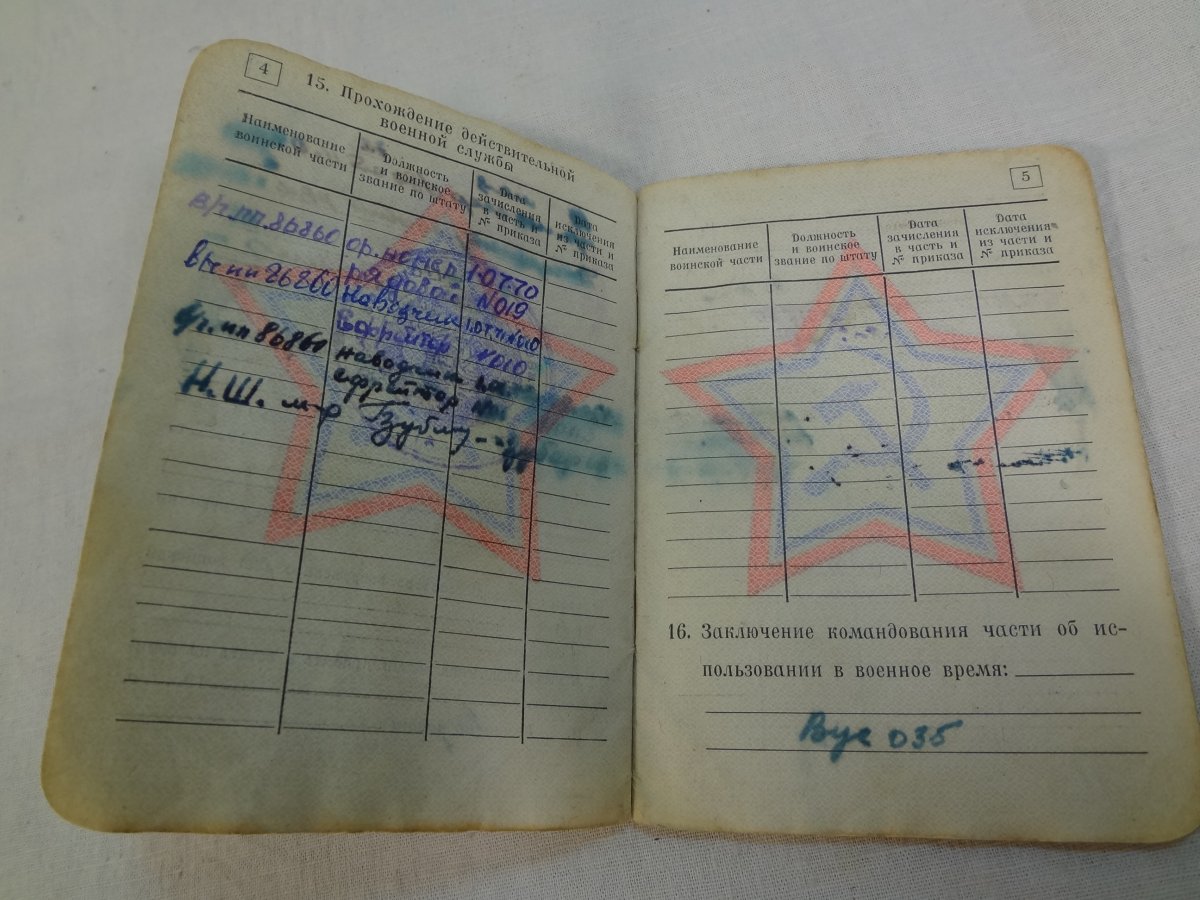 4
15. Прохождение действительной
военной службы
Наименование
воинской части
Должность
и воинское
звание по штату
Дата
зачисления
в часть и
№ приказа
Дата
исключения
из части и
№ приказа
в/ч пп. 86860 ор. номер
рядовой N019
наводчик
Ефрейтор N010
пп 86860 наводчик
ефрейтор
Н.Ш. м-р
5
Наименование
воинской части
Должность
и воинское
звание по штату
Дата
зачисления
в часть и
№ приказа
Дата
исключения
из части и
№ приказа
16. Заключение командования части об ис-
пользовании в военное время:
Вус 035